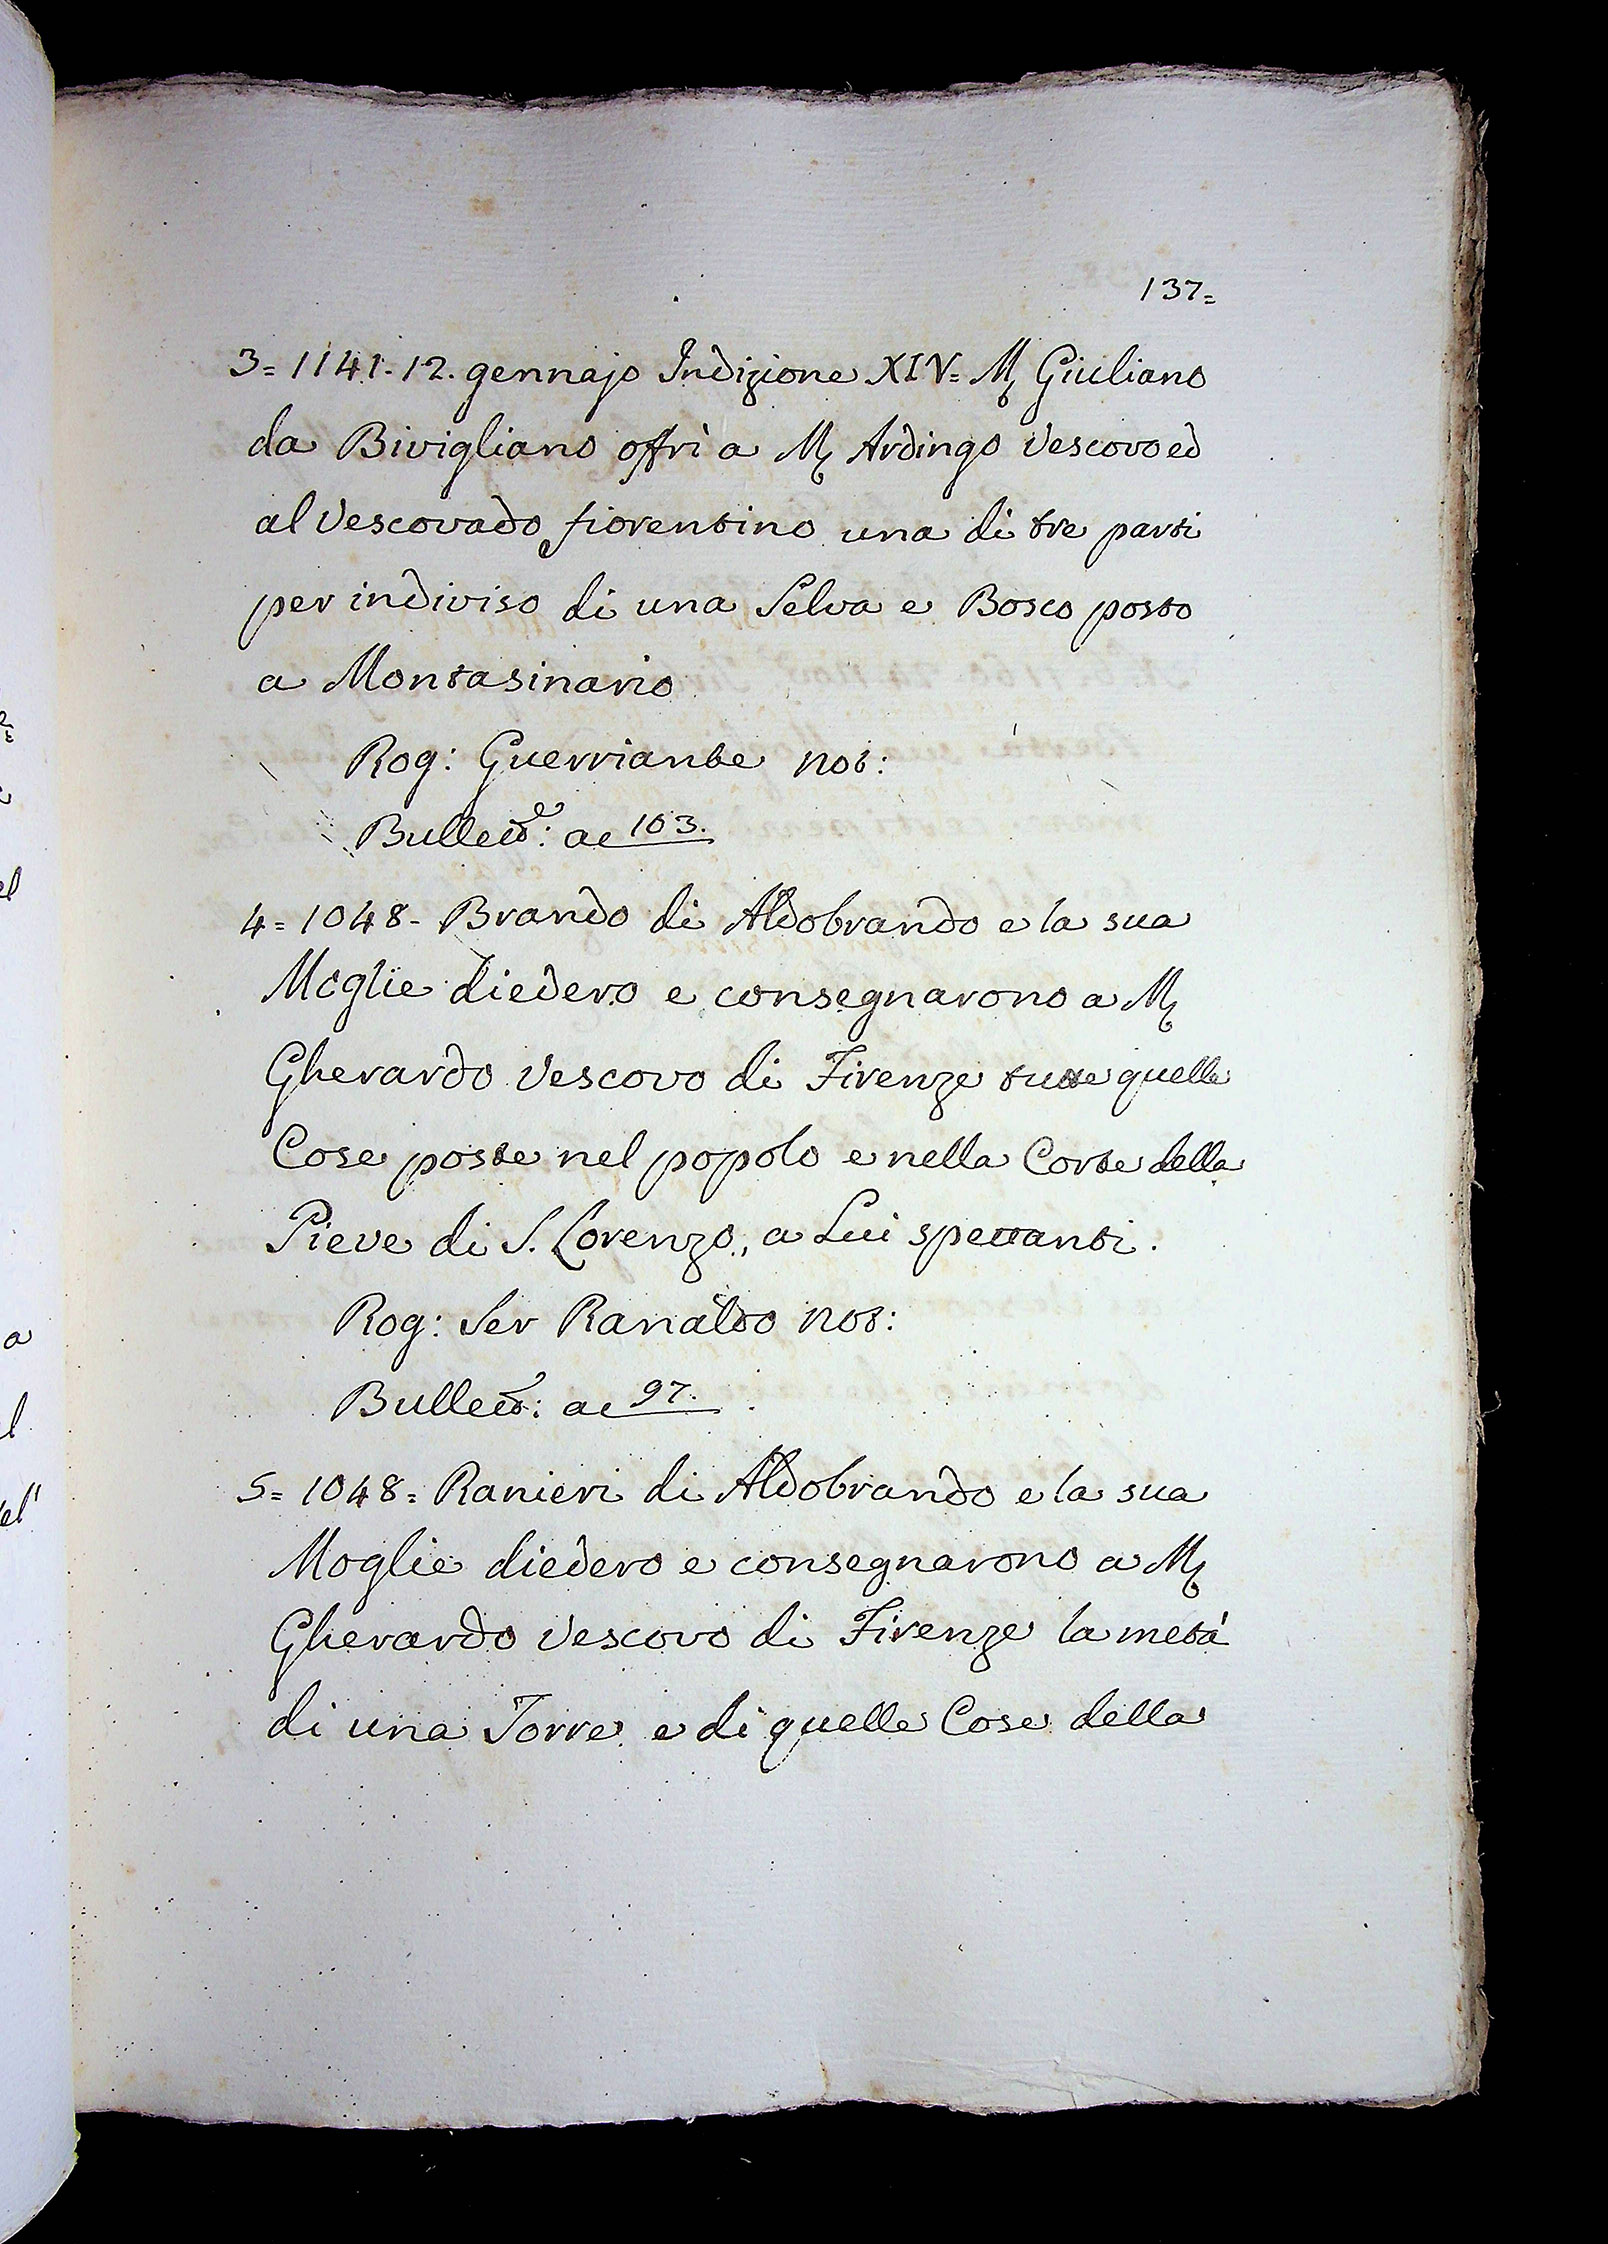 137=
3= 1141. 12. gennajo Indizione XIV= M. Giuliano
da Bivigliano offrì a M. Ardingo Vescovo ed
al Vescovado fiorentino una di tre parti
per indiviso di una Selva e Bosco posto
a Montasinario
Rog: Guerriante not:
Bullett.e: ac 103.
4= 1048- Brando di Aldobrando e la sua
Moglie diedero e consegnarono a M.
Gherardo Vescovo di Firenze tutte quelle
Cose poste nel popolo e nella Corte della
Pieve di S. Lorenzo, a Lui spettanti.
Rog: Ser Ranaldo not:
Bullett.e: ac 97.
5= 1048= Ranieri di Aldobrando e la sua
Moglie diedero e consegnarono a M.
Gherardo Vescovo di Firenze la metà
di una Torre e di quelle Cose della